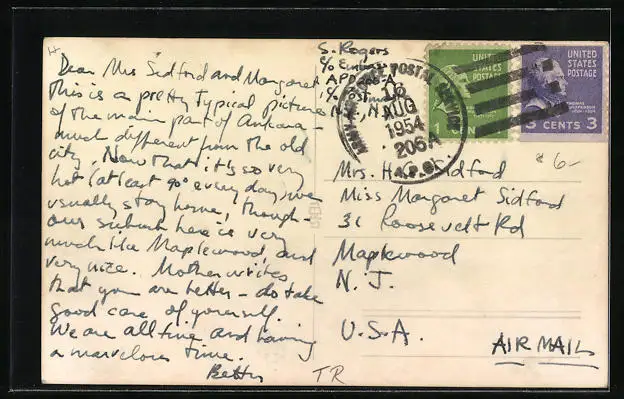 Dear Mrs Sidford and Margaret
This is a pretty typical picture
of the main part of Ankara -
much different from the old
city. Now that it's so very
hot (at least 90° every day) we
usually stay home, though -
our suburb here is very
much like Maplewood, and
very nice. Mother writes
that you are better - do take
good care of yourself.
We are all fine and having
a marvelous time.
Betty
S. Rogers
c/o Embassy
APO 206-A
c/o Postmaster
N.Y., N.Y.
ARMY-AIR FORCE POSTAL SERVICE
16
AUG
1954
206A
A.P.O.
UNITED
STATES
POSTAGE
1
UNITED
STATES
POSTAGE
THOMAS
JEFFERSON
3 CENTS 3
$6-
Mrs. H. Sidford
Miss Margaret Sidford
31 Roosevelt Rd
Maplewood
N. J.
U.S.A.
AIR MAIL
TR